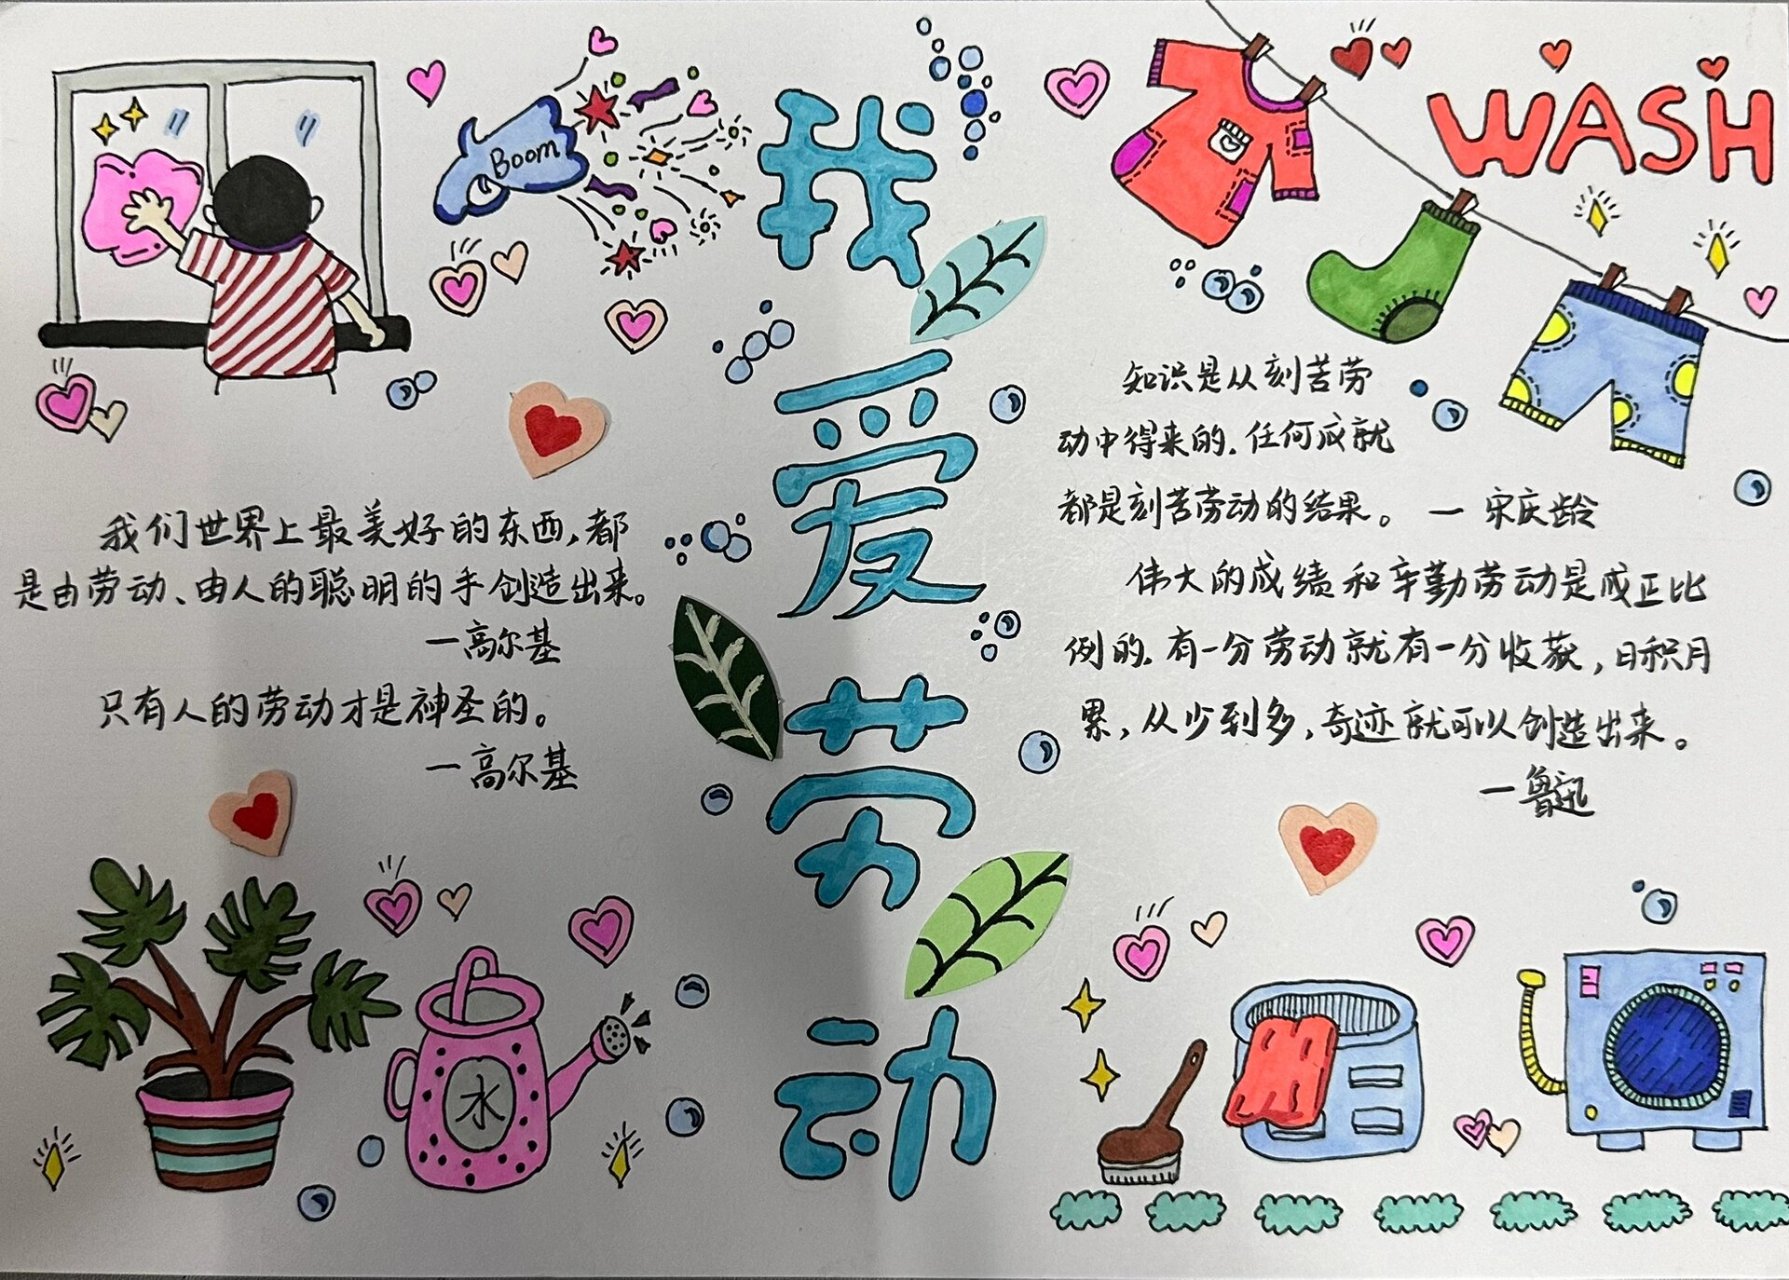 Boom
我爱劳动
WASH
我们世界上最美好的东西,都
是由劳动、由人的聪明的手创造出来。
—高尔基
只有人的劳动才是神圣的。
—高尔基
知识是从刻苦劳
动中得来的.任何成就
都是刻苦劳动的结果。 —宋庆龄
伟大的成绩和辛勤劳动是成正比
例的.有一分劳动就有一分收获,日积月
累,从少到多,奇迹就可以创造出来。
—鲁迅
水